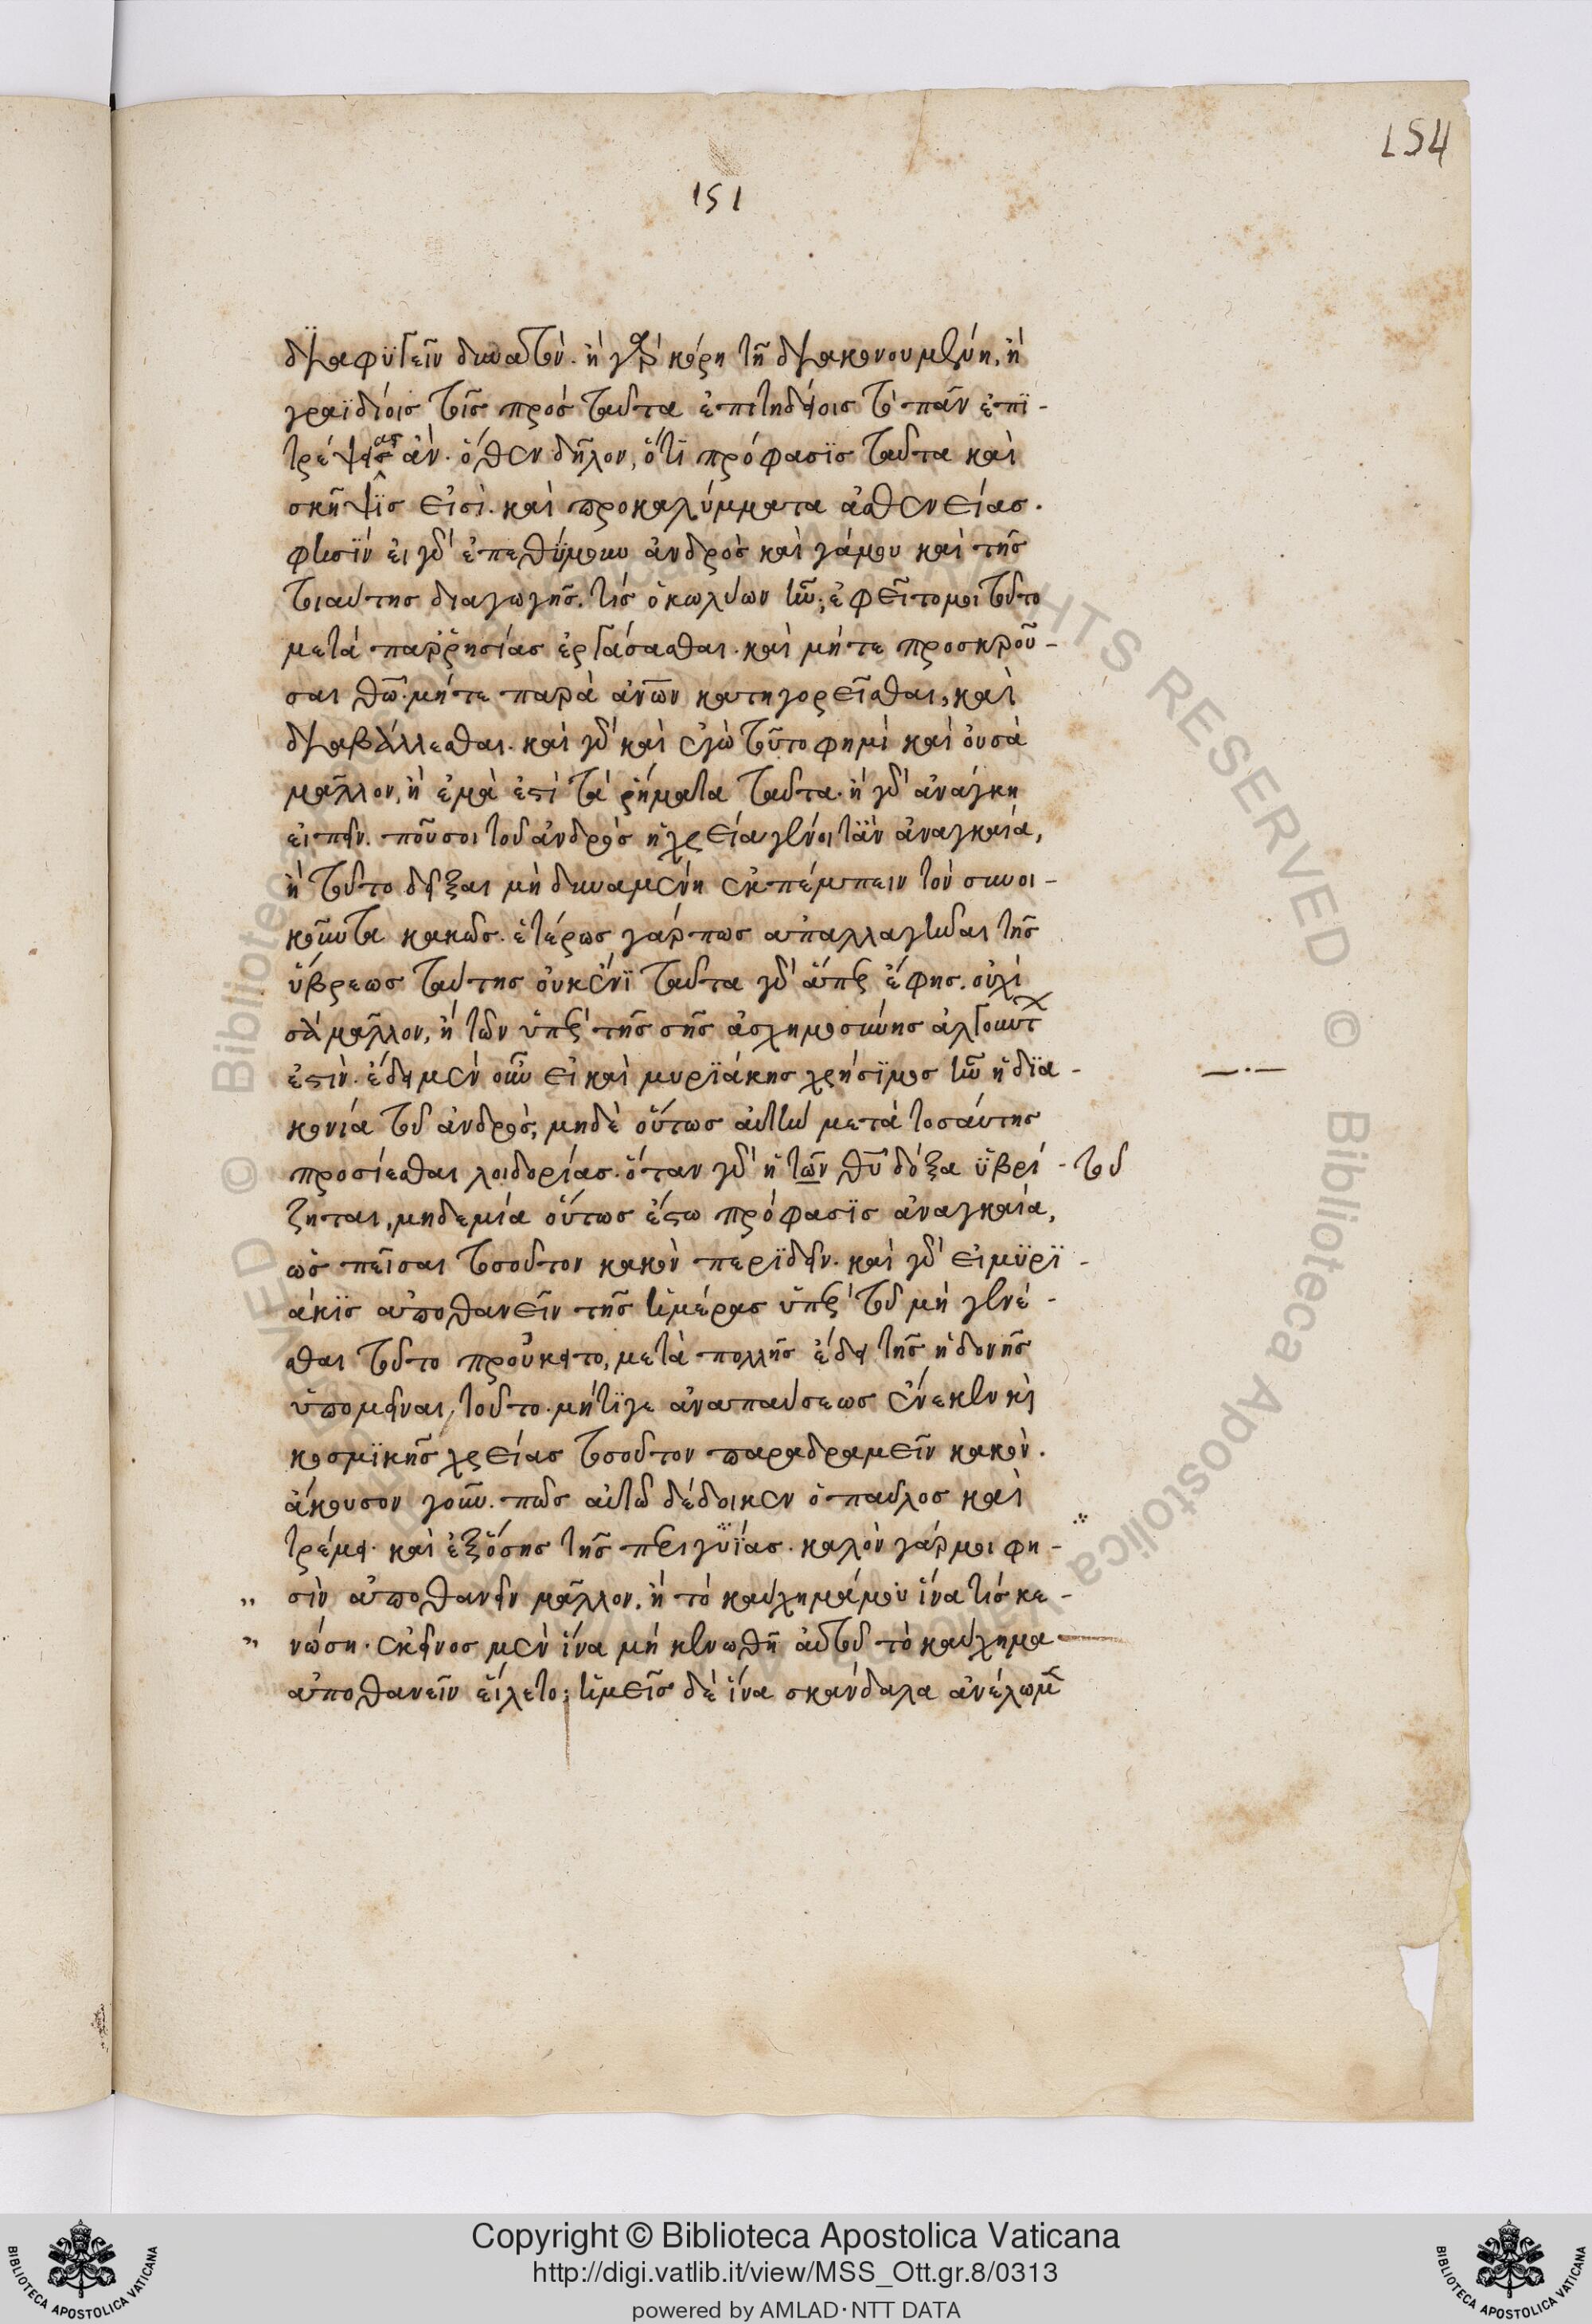 154
151
διαφυγεῖν δυνατόν. ἢ γὰρ κόρη τῇ διακονουμένῃ, ἢ
γραϊδίοις τοῖς πρὸς ταῦτα ἐπιτηδείοις τὸ πᾶν ἐπι-
τρέψειας ἄν. ὅθεν δῆλον, ὅτι πρόφασις ταῦτα καὶ
σκῆψις εἰσὶ. καὶ προκαλύμματα ἀσθενείας.
φησὶν εἰ γὰρ ἐπεθύμουν ἀνδρὸς καὶ γάμου καὶ τῆς
τοιαύτης διαγωγῆς. τίς ὁ κωλύων ἦν; ἐφεῖτο μοι τοῦτο
μετὰ παρρησίας ἐργάσασθαι. καὶ μήτε προσκροῦ-
σαι θω. μήτε παρὰ ανων κατηγορεῖσθαι, καὶ
διαβάλλεσθαι. καὶ γὰρ καὶ ἐγὼ τοῦτο φημὶ καὶ οὐ σὰ
μᾶλλον, ἢ ἐμὰ ἐστὶ τὰ ῥήματα ταῦτα. ἢ γὰρ ἀνάγκη
εἰπεῖν. ποῦ σοι τοῦ ἀνδρὸς ἡ χρεία γένοιτ' ἂν ἀναγκαία,
ἢ τοῦτο δεῖξαι μὴ δυναμένη ἐκπέμπειν τὸν συνοι-
κοῦντα κακῶς. ἑτέρως γάρ πως ἀπαλλαγῆναι τῆς
ὕβρεως ταύτης οὐκ ἔνι ταῦτα γὰρ ἅπερ ἔφης. οὐχὶ
σὰ μᾶλλον, ἢ τῶν ὑπὲρ τῆς σῆς ἀσχημοσύνης ἀλγούντων
ἐστὶν. ἔδει μὲν οὖν εἰ καὶ μυριάκης χρήσιμος ἦν ἡ δια-
κονία τοῦ ἀνδρὸς, μηδὲ οὕτως αὐτὴν μετὰ τοσαύτης
προσίεσθαι λοιδορίας. ὅταν γὰρ ἡ τῶν θυ δόξα ὑβρί- τοῦ
ζηται, μηδεμία οὕτως ἔστω πρόφασις ἀναγκαία,
ὡς πεῖσαι τοσοῦτον κακὸν περιϊδεῖν. καὶ γὰρ εἰ μυρι-
άκις ἀποθανεῖν τῆς ἡμέρας ὑπὲρ τοῦ μὴ γενέ-
σθαι τοῦτο προὔκειτο, μετὰ πολλῆς ἔδει τῆς ἡδονῆς
ὑπομεῖναι, τοῦτο. μήτιγε ἀναπαύσεως ἕνεκεν καὶ
κοσμικῆς χρείας τοσοῦτον παραδραμεῖν κακὸν.
ἄκουσον γοῦν. πῶς αὐτὸ δέδοικεν ὁ παῦλος καὶ
τρέμει. καὶ ἐξ ὅσης τῆς περιγυΐας. καλὸν γάρ μοι φη-
" σὶν ἀποθανεῖν μᾶλλον, ἢ τὸ καύχημά μου ἵνα τίς κε-
" νώση. ἐκεῖνος μὲν ἵνα μὴ κενωθῆ αὐτοῦ τὸ καύχημα
ἀποθανεῖν εἵλετο; ἡμεῖς δὲ ἵνα σκάνδαλα ἀνέλωμεν
Copyright © Biblioteca Apostolica Vaticana
http://digi.vatlib.it/view/MSS_Ott.gr.8/0313
powered by AMLAD·NTT DATA